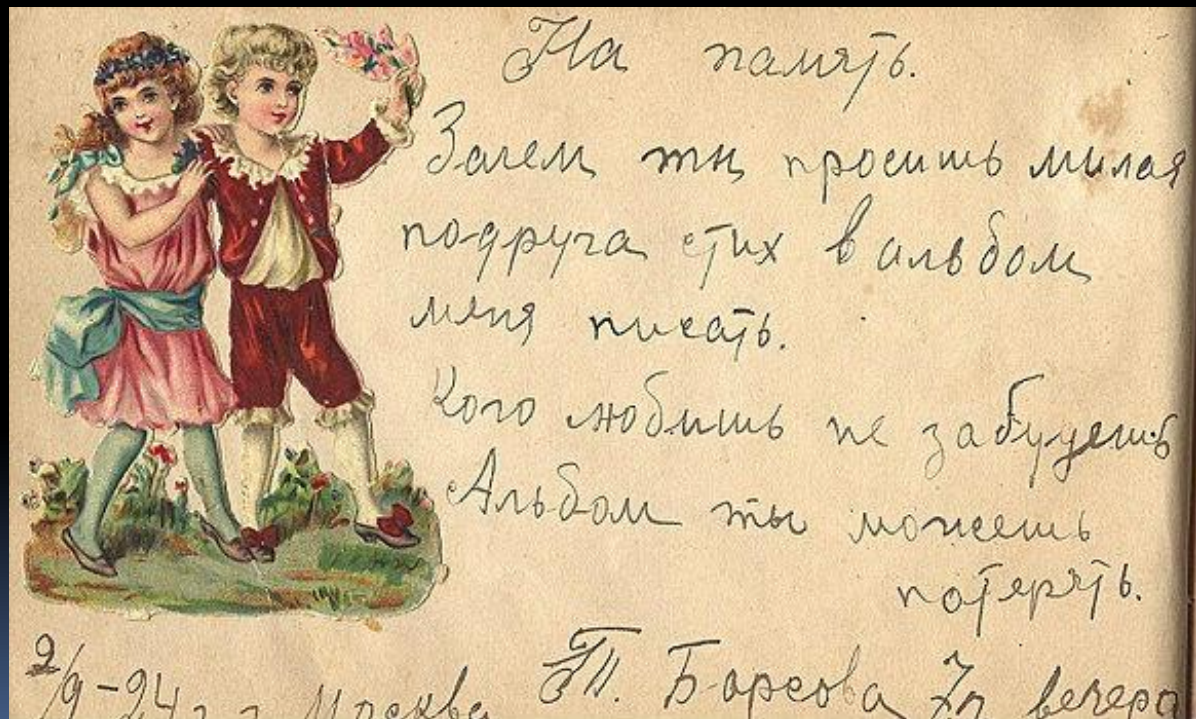 На память.
Зачем ты просишь милая
подруга стих в альбом
меня писать.
Кого любишь не забудешь
Альбом ты можешь
потерять.
2/9-24 г. г. Москва Т. Борсова 7 ч вечера